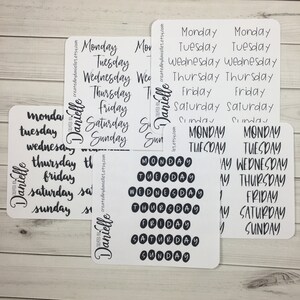 Monday Monday
Tuesday
Wednesday
Thursday
Friday
Saturday
Sunday
Danielle
Monday Monday
Tuesday Tuesday
Wednesday Wednesday
Thursday Thursday
Friday Friday
Saturday Saturday
Sunday Sunday
monday
tuesday
wednesday
thursday
friday
saturday
sunday
Danielle
MONDAY MONDAY
TUESDAY TUESDAY
WEDNESDAY
THURSDAY
FRIDAY
SATURDAY
SUNDAY
Danielle
MONDAY
TUESDAY
WEDNESDAY
THURSDAY
FRIDAY
SATURDAY
SUNDAY